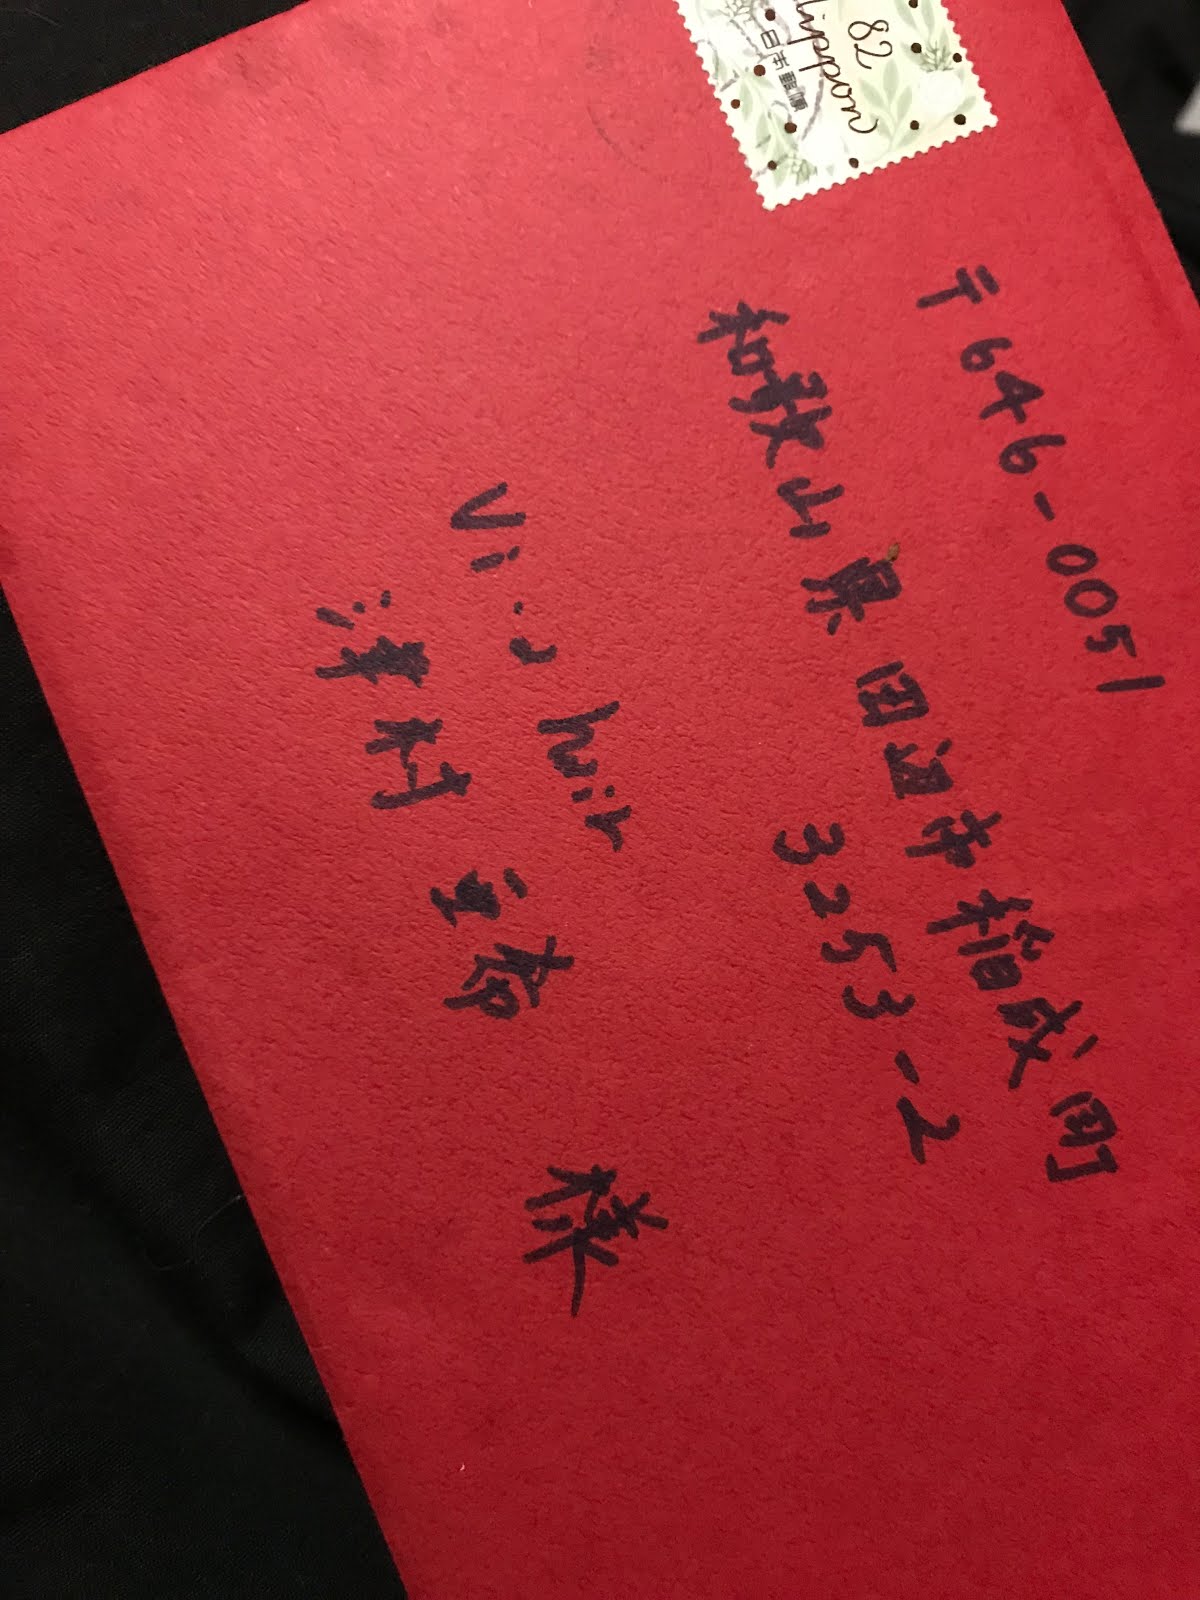 82
Nippon
日本郵便
〒646-0051
和歌山県田辺市稲成町
3253-2
Vi.a hair
津村
様